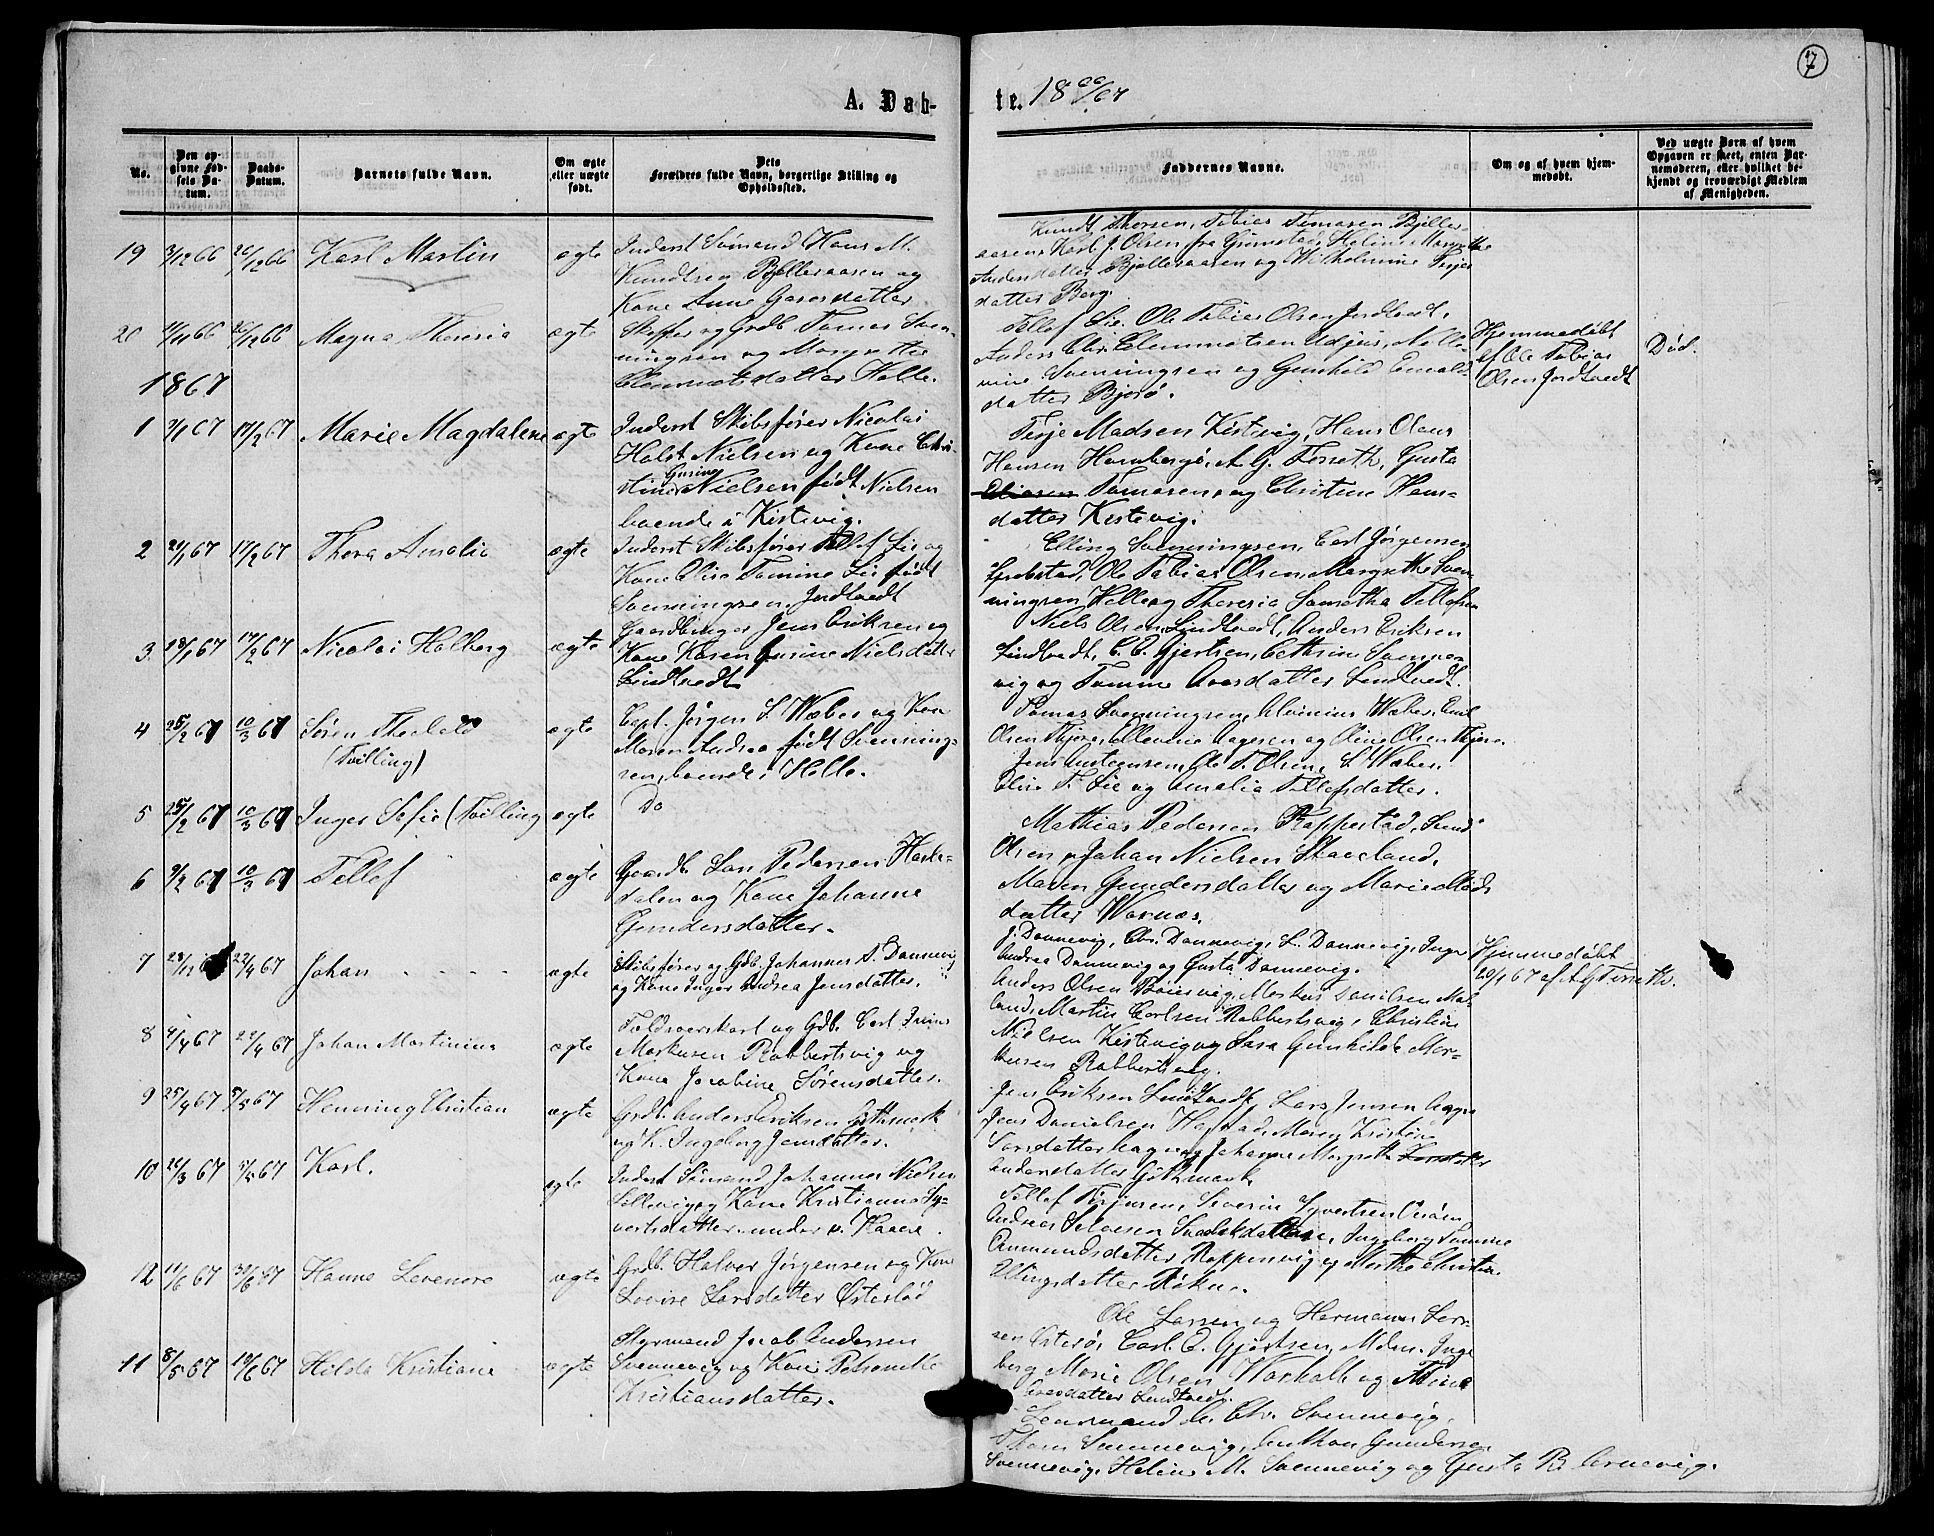 7
A. Døb-
te. 18 66/67
No.
Den op-
givne Fød-
sels Da-
tum.
Daabs-
Datum.
Barnets fulde Navn.
Om ægte
eller uægte
født.
Dets
Forældres fulde Navn, borgerlige Stilling og
Opholdssted.
Faddernes Navne.
Om og af hvem hjem-
medøbt.
Ved uægte Børn af hvem
Opgaven er skeet, enten Bar-
nemoderen, eller hvilket be-
kjendt og troværdigt Medlem
af Menigheden.
19 3/12 66 26/12 66 Karl Martin ægte
Inderst Sømand Hans M.
Knudtsen Bjelleraasen og
Kone Anne Garosdatter.
Knudt Thorsen, Tobias Tomasen Bjeller-
aasen, Karl J. Olsen fra Grimstad, Heline Margrethe
Andersdatter Bjelleraasen og Wilhelmine Terjes
datter Berg.
20 26/12 66 Magna Theresia ægte
Skipper og Grdb Tomas Sven-
ningsen og Margrethe
Clemmetsdatter Helle.
Tellef Lie. Ole Tobias Olsen Jordtvedt.
Anders Chr. Clemmetsen Udjus,
Svenningsen og Gunhild
datter Bjorø.
Hjemmedøbt
af Ole Tobias
Olsen Jordtvedt
Død.
1867
1 3/1 67 17/2 67 Marie Magdalene ægte
Inderst Skibsfører Nicolai
Holst Nielsen og Kone Chri-
stine Gusine Nielsen født Nielsen
boende i Kistevig.
Terje Madsen Kistevig, Hans Olaus
Hansen Hombergø, A. G. Terseth, Gusta
Tomasen, og Christine Hans-
datter Kistevig.
2 21/1 67 17/2 67 Thora Amalia ægte
Inderst Skibsfører Tellef Lie og
Kone Olise Tomine Lie født
Svenningsen Jordtvedt
Elling Svenningsen, Carl Jørgensen
Grobstad, Ole Tobias Olsen, Margrethe Sven-
ningsen Helle og Theresia Tellefsen
3 18/1 67 17/2 67 Nicolai Holberg ægte
Gaardbruger Jens Eriksen og
Kone Karen Gusine Nielsdatter
Lindtvedt
Niels Olsen Lindtvedt, Anders Eriksen
Lindtvedt, C. E. Gjertsen, Cathrine Svenne-
vig og Tomine Aasdatter Lindtvedt.
4 25/2 67 10/3 67 Søren Theobald ægte
(Tvilling)
Capt. Jørgen S. Wæber og Kone
Maren Andrea født Svenning-
sen, boende i Helle.
Tomas Svenningsen, Alvinius Wæber, Emil
Olsen Fhjære, Ellevine Aagesen og Oline Olsen Fhjære.
5 25/2 67 10/3 67 Inger Sofie (Tvilling) ægte
Do
Jens Austensen, Ole T. Olsen, S. Wæber.
Olise T. Lie og Amalia Tellefsdatter.
6 9/2 67 10/3 67 Tellef ægte
Gaardb. Lars Pedersen Haske-
dalen og Kone Johanne
Gundersdatter.
Mathias Pedersen Rappestad, Gund
Olsen, Johan Nielsen Skaveland,
Maren Gundersdatter og Marie Mads
datter Warnæs.
7 28/12 66 22/4 67 Johan ægte
Skibsfører og Gdb. Johannes S. Dannevig
og Kone Inger Andrea Jensdatter.
J. Dannevig, Chr. Dannevig, L. Dannevig, Inger
Andrea Dannevig og Gusta Dannevig.
Hjemmedøbt
20/1 67 af A. G. Terseth.
8 4/4 67 22/4 67 Johan Martinius ægte
Toldroerskarl og Gdb. Carl Junius
Markusen Rabbertsvig og
Kone Jacobine Sørensdatter.
Anders Olsen Bjoievig, Markus Danielsen Mæ-
land, Martin Carlsen Rabbertsvig, Christine
Nielsen Kistevig og Sara Gunhilde Mar-
kusen Rabbertsvig.
9 25/4 67 5/5 67 Henning Christian ægte
Grdb. Anders Eriksen Gothmark
og K. Ingeborg Jensdatter.
Jens Eriksen Lindtvedt, Lars Jensen
Jens Danielsen Hafstad, Maren Kristine
Larsdatter og Johanne Margrethe
Andersdatter Gothmark
10 26/3 67 5/5 67 Karl. ægte
Inderst Sømand Johannes Nielsen
Sellevig og Kone Kristianne Sy-
vertsdatter, under v. Kaære.
Tellef Terjesen, Severin Syvertsen
Andreas Salvesen Ingeborg Tomine
Aanmundsdatter Rappenvig og Marthe Christine
Ellingsdatter Røkne.
12 11/6 67 30/6 67 Hanne Levenore ægte
Grdb. Halvor Jørgensen og Kone
Lovise Larsdatter Østestad
Ole Larsen og Hermann Lar-
sen Osterø, Carl E. Gjertsen, Mdm. Inge
borg Marie Olsen Warholt og Tine
Aresdatter Lindtvedt.
11 8/5 67 19/6 67 Hilda Kristiane ægte
Styrmand Jacob Andersen
Svennevig og Kone Petronelle
Kristiansdatter.
Lensmand A. Chr. Svennevig,
Thom Svennevig, Anthon Gundersen
Svennevig, Heline M. Svennevig og Gusta B. Svennevig.